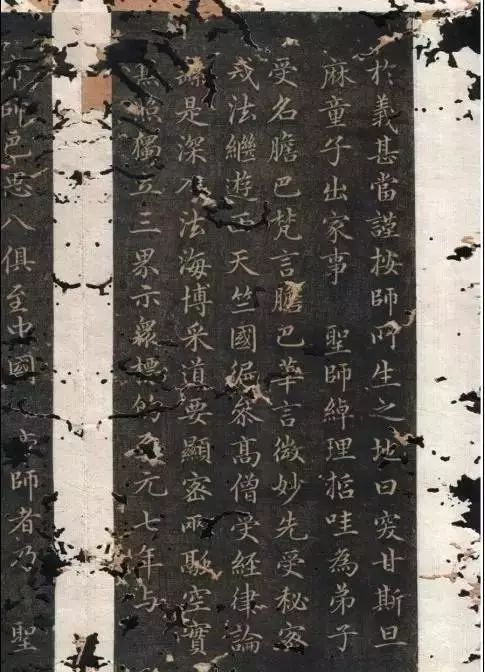 於義甚當謹按師所生之地曰突甘斯旦
麻童子出家事 聖師綽理哲哇為弟子
受名膽巴梵言膽巴華言微妙先受秘密
戒法繼遊西天竺國徧參高僧受經律論
是深入法海博采道要顯密兩融空實
照獨立三界示衆標的至元七年與
帝師巴思八俱至中國 師者乃 聖